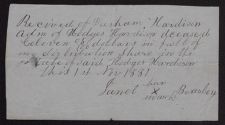 Received of Durham Hardison
Adm of Hodges Hardison deceased
Eleven $ dollars in full of
my distributive share in the
estate of said Hodges Hardison
this 1st Nov 1851
her
Janet X Beasley
mark